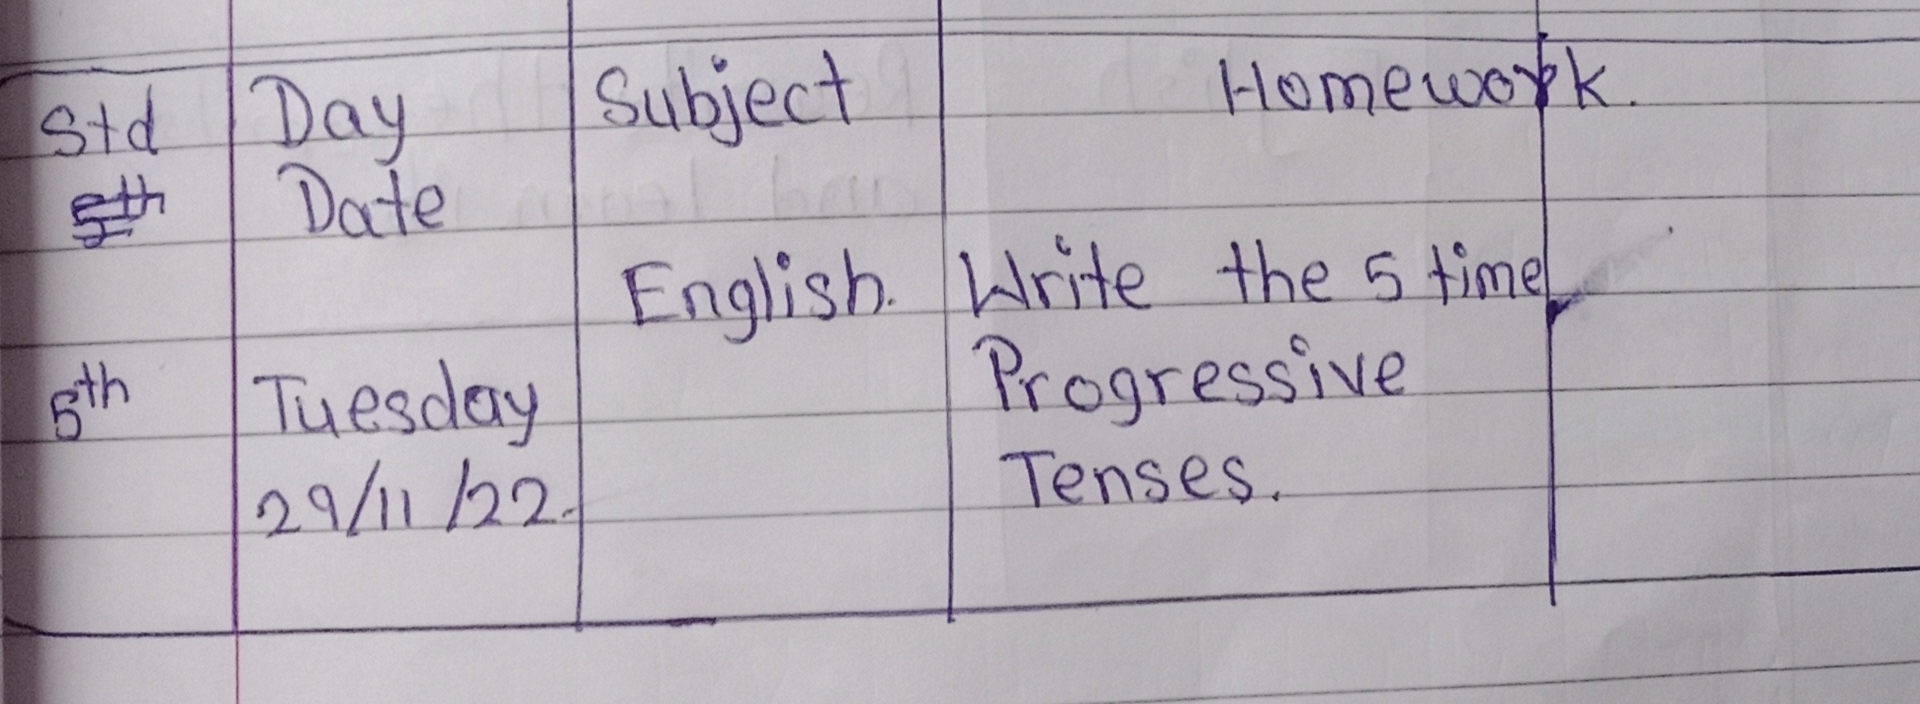 Std Day Subject Homework.
Date
English. Write the 5 time
5th Tuesday Progressive
29/11/22. Tenses.